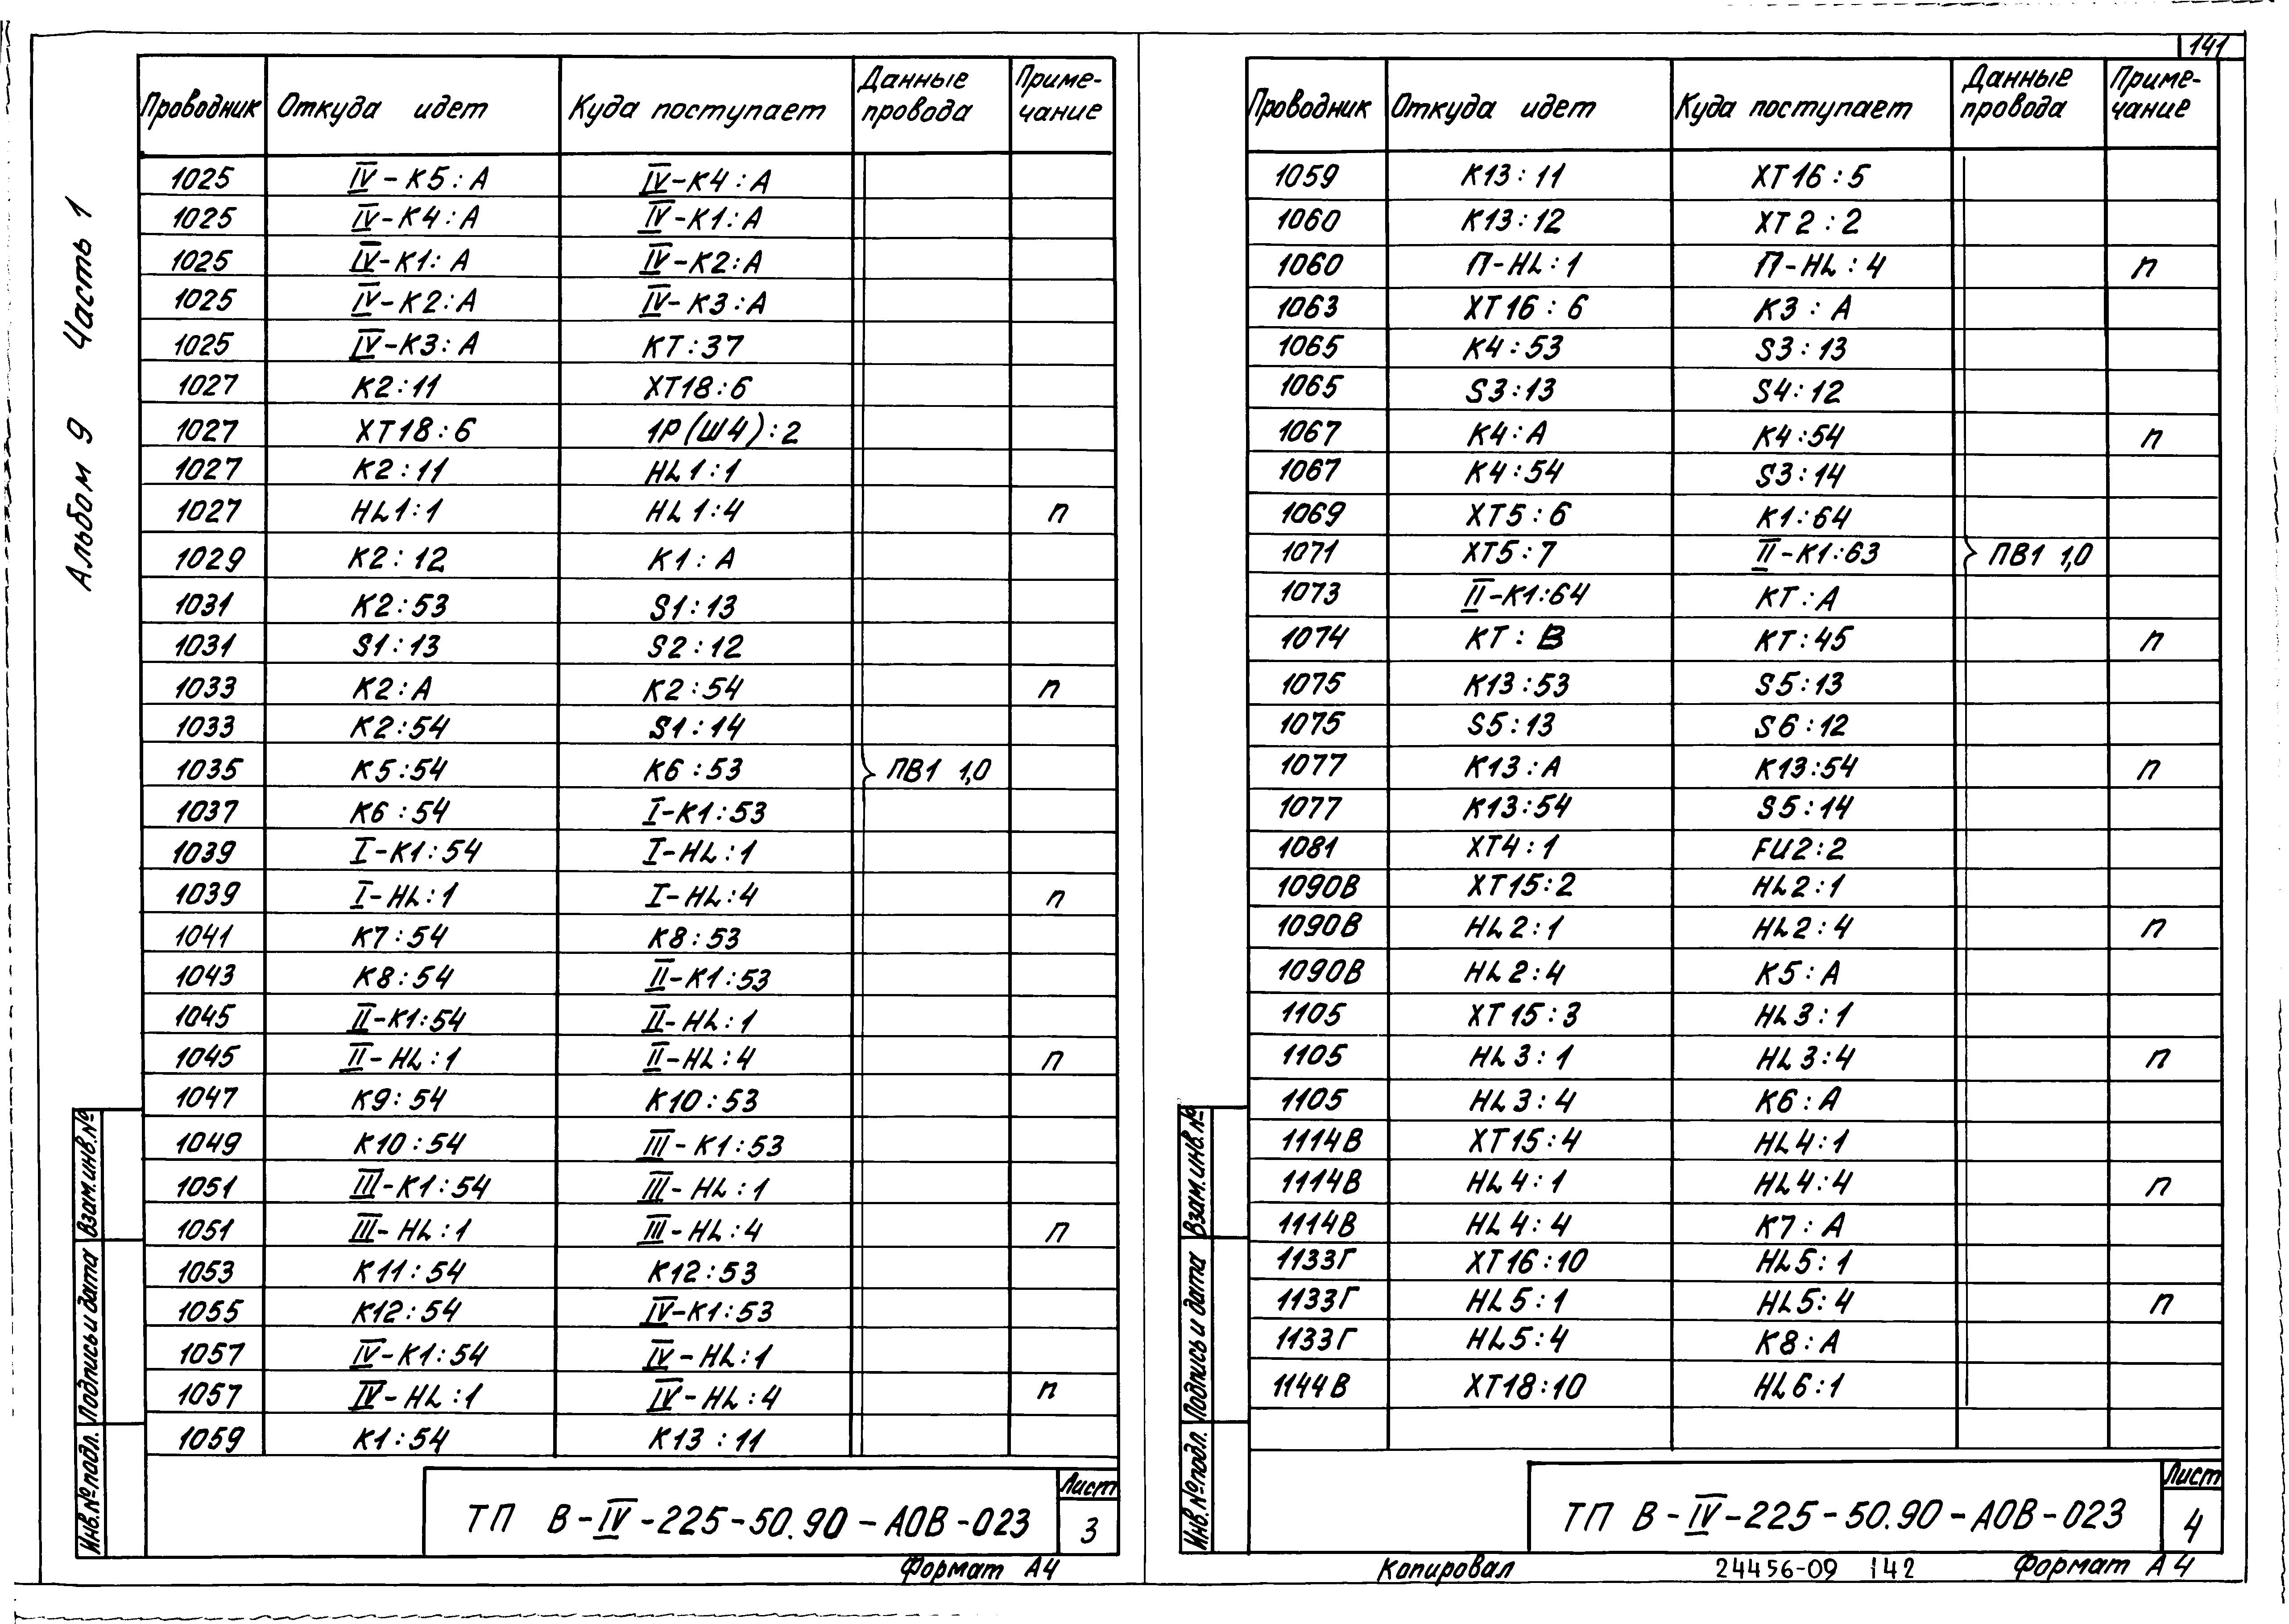 141
Альбом 9 Часть 1
Проводник Откуда идет Куда поступает Данные провода Приме-чание
1025 IV-К5:А IV-К4:А
1025 IV-К4:А IV-К1:А
1025 IV-К1:А IV-К2:А
1025 IV-К2:А IV-К3:А
1025 IV-К3:А КТ:37
1027 К2:11 ХТ18:6
1027 ХТ18:6 1Р(Ш4):2
1027 К2:11 HL1:1
1027 HL1:1 HL1:4 п
1029 К2:12 К1:А
1031 К2:53 S1:13
1031 S1:13 S2:12
1033 К2:А К2:54 п
1033 К2:54 S1:14
1035 К5:54 К6:53 ПВ1 1,0
1037 К6:54 I-К1:53
1039 I-К1:54 I-HL:1
1039 I-HL:1 I-HL:4 п
1041 К7:54 К8:53
1043 К8:54 II-К1:53
1045 II-К1:54 II-HL:1
1045 II-HL:1 II-HL:4 п
1047 К9:54 К10:53
1049 К10:54 III-К1:53
1051 III-К1:54 III-HL:1
1051 III-HL:1 III-HL:4 п
1053 К11:54 К12:53
1055 К12:54 IV-К1:53
1057 IV-К1:54 IV-HL:1
1057 IV-HL:1 IV-HL:4 п
1059 К1:54 К13:11
Инв.№подл. Подпись и дата Взам.инв.№
ТП В-IV-225-50.90-АОВ-023
Лист
3
Формат А4
Проводник Откуда идет Куда поступает Данные провода Приме-чание
1059 К13:11 ХТ16:5
1060 К13:12 ХТ2:2
1060 П-HL:1 П-HL:4 п
1063 ХТ16:6 К3:А
1065 К4:53 S3:13
1065 S3:13 S4:12
1067 К4:А К4:54 п
1067 К4:54 S3:14
1069 ХТ5:6 К1:64
1071 ХТ5:7 II-К1:63 ПВ1 1,0
1073 II-К1:64 КТ:А
1074 КТ:В КТ:45 п
1075 К13:53 S5:13
1075 S5:13 S6:12
1077 К13:А К13:54 п
1077 К13:54 S5:14
1081 ХТ4:1 FU2:2
1090В ХТ15:2 HL2:1
1090В HL2:1 HL2:4 п
1090В HL2:4 К5:А
1105 ХТ15:3 HL3:1
1105 HL3:1 HL3:4 п
1105 HL3:4 К6:А
1114В ХТ15:4 HL4:1
1114В HL4:1 HL4:4 п
1114В HL4:4 К7:А
1133Г ХТ16:10 HL5:1
1133Г HL5:1 HL5:4 п
1133Г HL5:4 К8:А
1144В ХТ18:10 HL6:1
Инв.№подл. Подпись и дата Взам.инв.№
ТП В-IV-225-50.90-АОВ-023
Лист
4
Копировал 24456-09 142 Формат А4